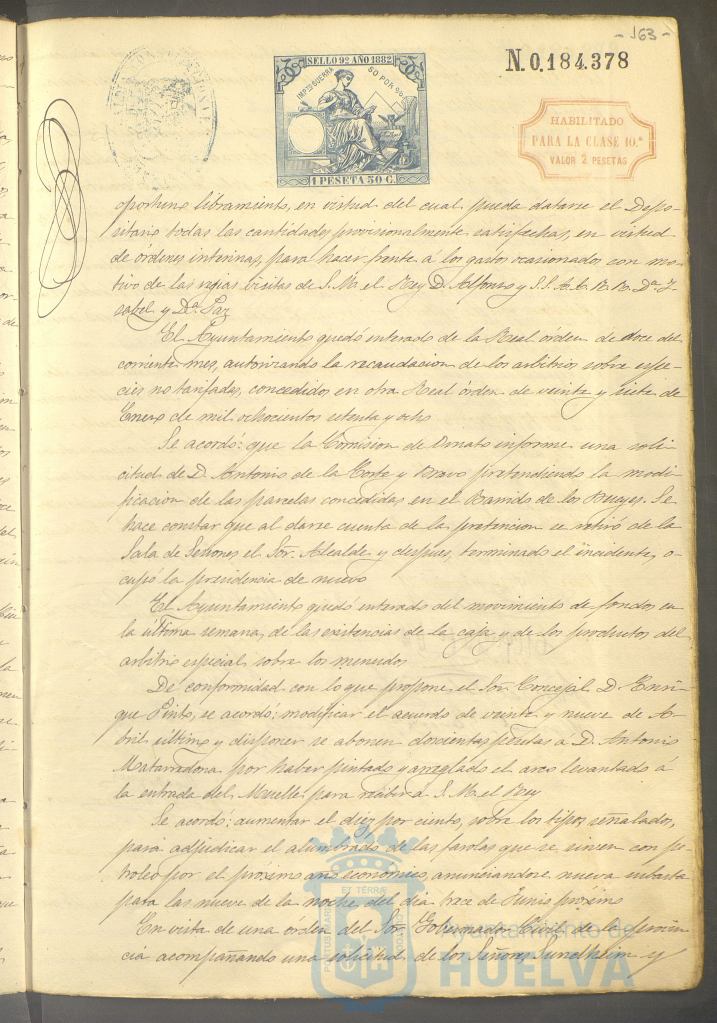 - 163 -
SELLO 9º AÑO 1882
IMPTO GUERRA 50 POR 00
1 PESETA 50 C.
N.0.184.378
HABILITADO
PARA LA CLASE 10.ª
VALOR 2 PESETAS
oportuno libramiento, en virtud del cual pueda datarse el Depo-
sitario todas las cantidades provisionalmente satisfechas, en virtud
de órdenes interinas, para hacer frente á los gastos ocasionados con mo-
tivo de las regias visitas de S. M. el Rey D. Alfonso y S.S. A.A. R.R. Dª. Y-
sabel y Dª. Paz
El Ayuntamiento quedó enterado de la Real órden de doce del
corriente mes, autorizando la recaudacion de los arbitrios sobre espe-
cies no tarifadas, concedidos en otra Real órden de veinte y siete de
Enero de mil ochocientos setenta y ocho
Se acordó: que la Comision de Ornato informe una soli-
citud de D. Antonio de la Corte y Bravo pretendiendo la modi-
ficacion de las parcelas concedidas en el Barrido de los Bueyes. Se
hace constar que al darse cuenta de la pretencion se retiró de la
Sala de Sesiones el Sor. Alcalde y despues, terminado el incidente, o-
cupó la presidencia de nuevo
El Ayuntamiento quedó enterado del movimiento de fondos en
la última semana, de las existencias de la caja y de los productos del
arbitrio especial sobre los menudos
De conformidad con lo que propone el Sor. Concejal D. Enri-
que Pinto, se acordó: modificar el acuerdo de veinte y nueve de A-
bril último y disponer se abonen doscientas pesetas á D. Antonio
Matarredona por haber pintado y arreglado el arco levantado á
la entrada del Muelle para recibir á S. M. el Rey
Se acordó: aumentar el diez por ciento, sobre los tipos señalados,
para adjudicar el alumbrado de las farolas que se sirven con pe-
troleo por el próximo año económico, anunciandose nueva subasta
para las nueve de la noche del dia trece de Junio próximo
En vista de una órden del Sor. Gobernador Civil de la provin-
cia acompañando una solicitud de los Señores Sundheim y
PORTUS MARIS ET TERRÆ CUSTODIA
Ayuntamiento de
HUELVA